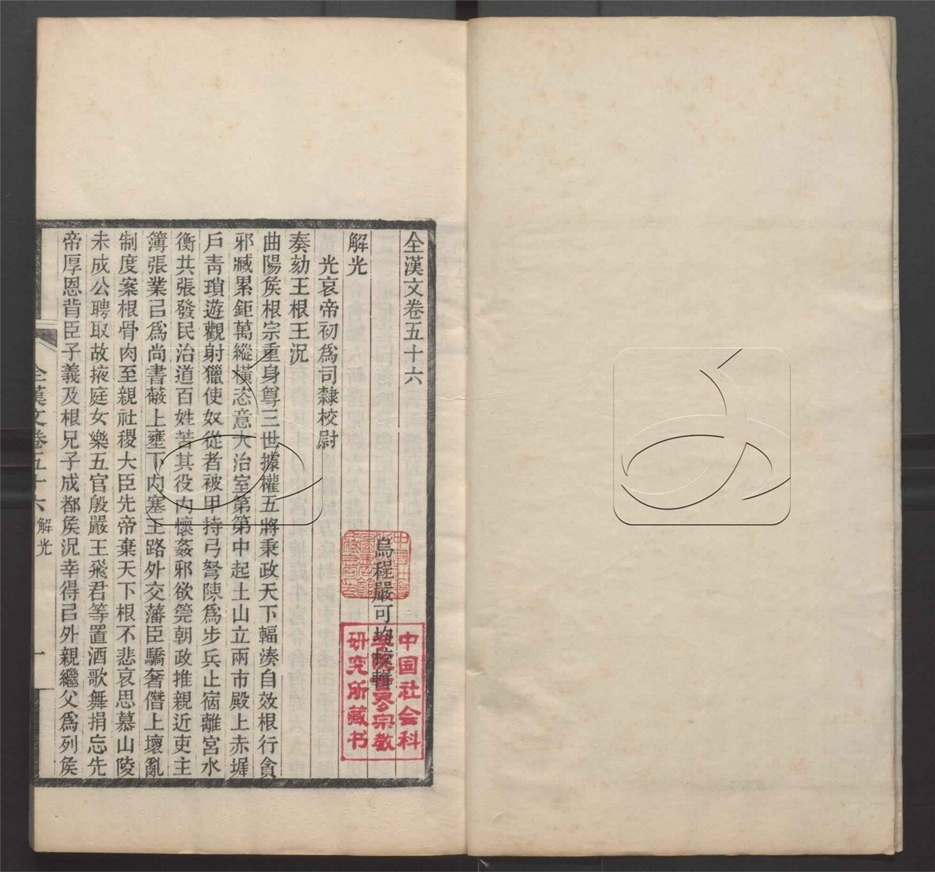 全漢文卷五十六
烏程嚴可均校輯
解光
光哀帝初爲司隸校尉
奏劾王根王況
曲陽矦根宗重身尊三世據權五將秉政天下輻湊自效根行貪
邪臧累鉅萬縱橫恣意大治室第第中起土山立兩市殿上赤墀
戶青瑣遊觀射獵使奴從者被甲持弓弩陳爲步兵止宿離宮水
衡共張發民治道百姓苦其役內懷姦邪欲筦朝政推親近吏主
簿張業㠯爲尚書蔽上壅下內塞王路外交藩臣驕奢僭上壞亂
制度案根骨肉至親社稷大臣先帝棄天下根不悲哀思慕山陵
未成公聘取故掖庭女樂五官殷嚴王飛君等置酒歌舞捐忘先
帝厚恩背臣子義及根兄子成都矦況幸得㠯外親繼父爲列矦
全漢文卷五十六 解光
一
中国社会科
学院世界宗教
研究所藏书